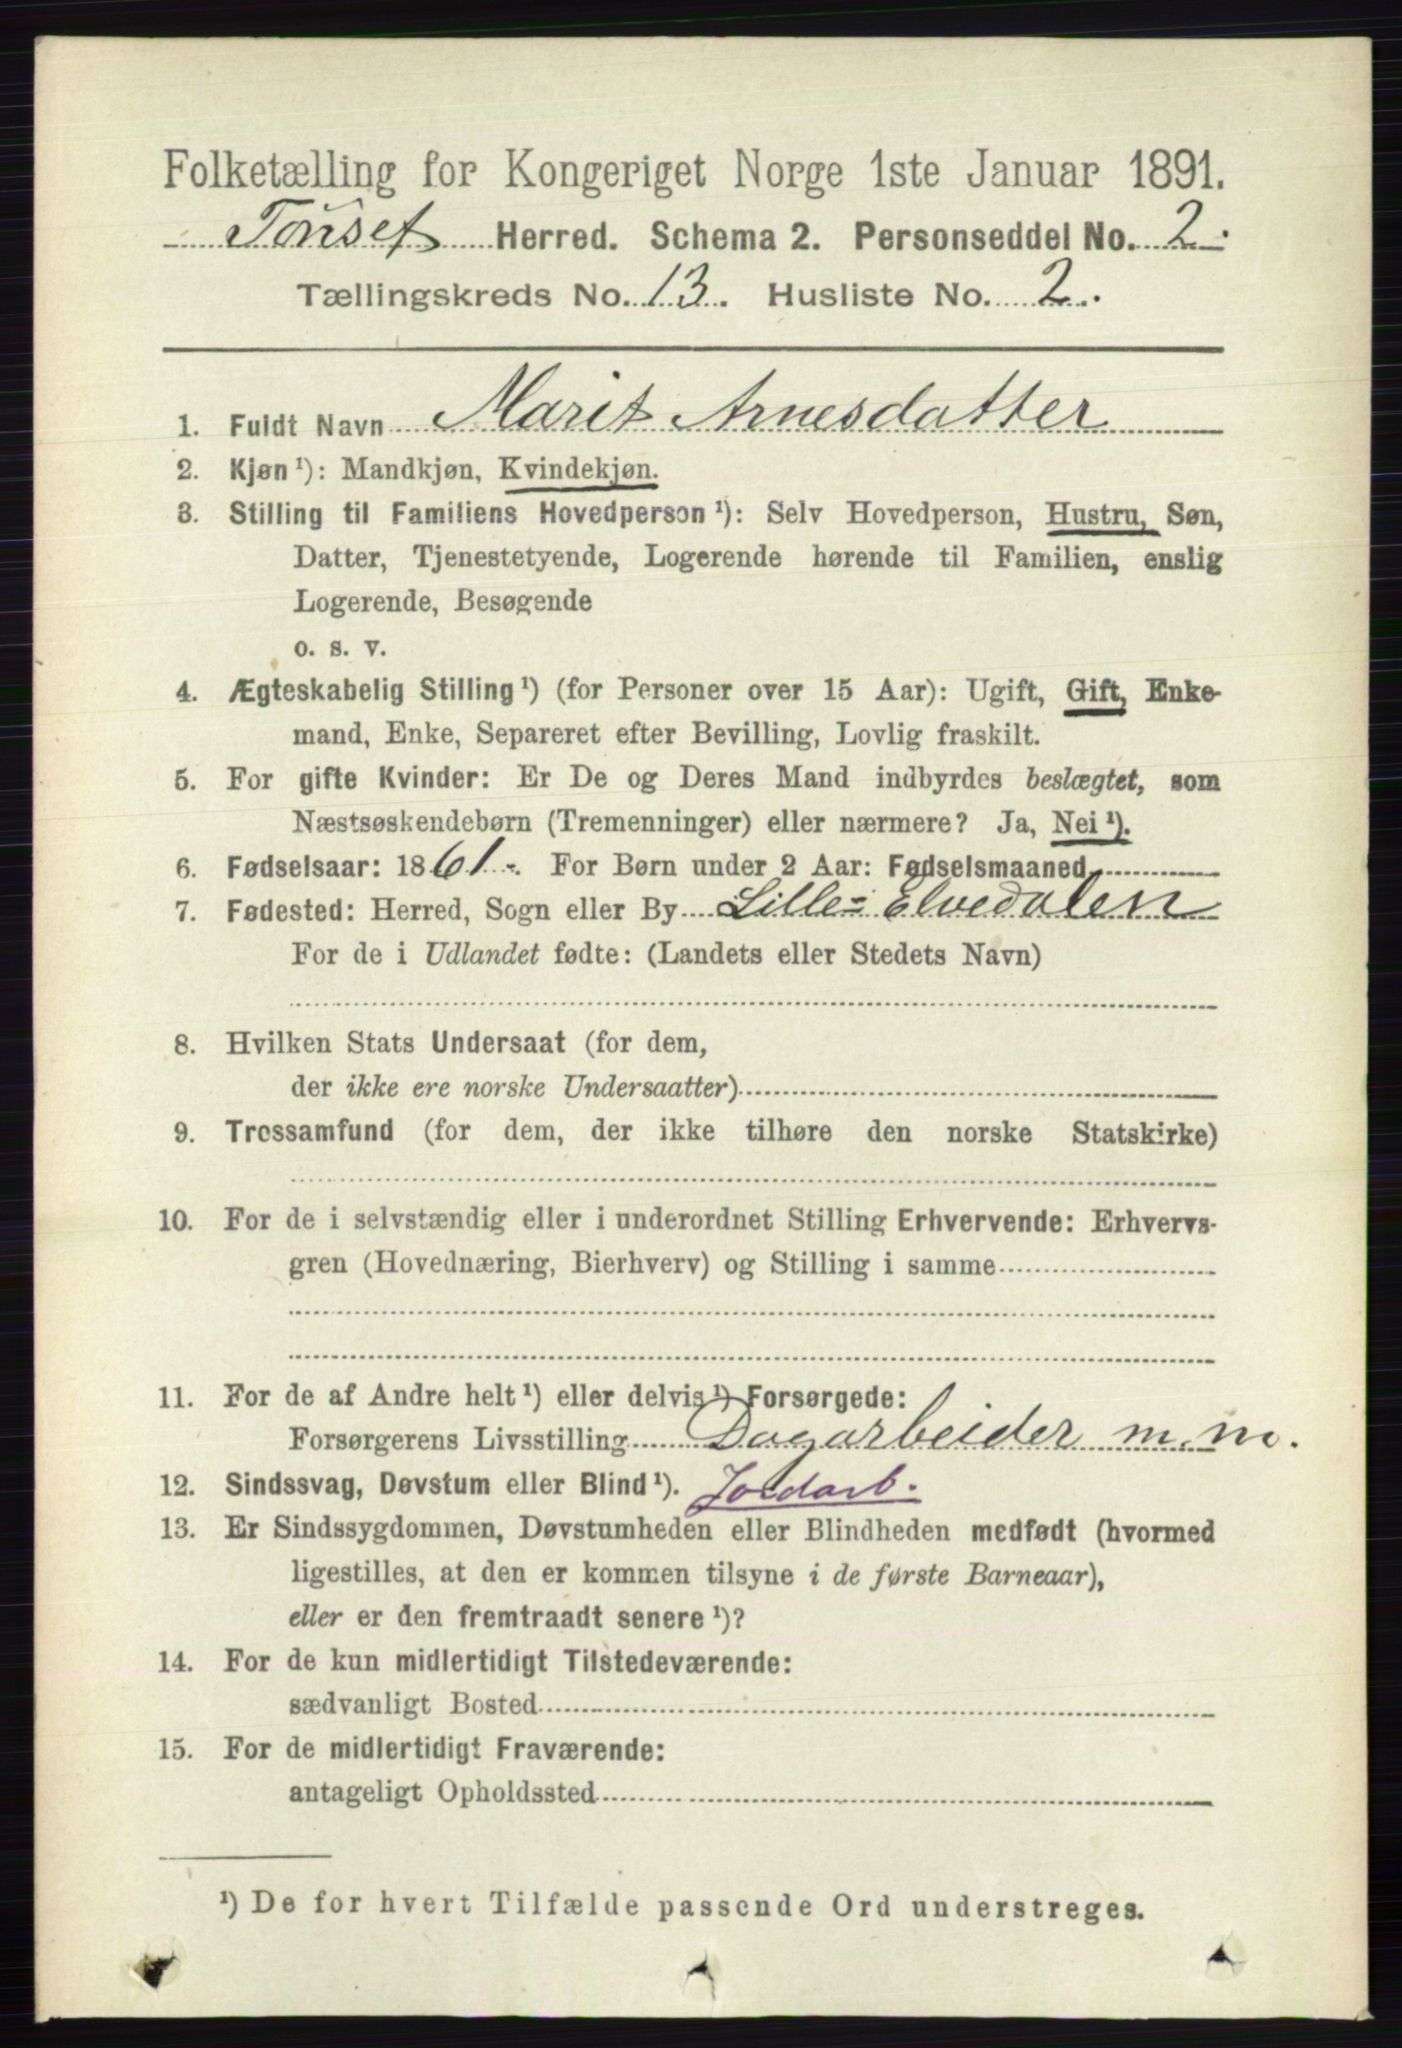 Folketælling for Kongeriget Norge 1ste Januar 1891.
Tönset Herred. Schema 2. Personseddel No. 2.
Tællingskreds No. 13. Husliste No. 2.
1. Fuldt Navn Marit Arnesdatter
2. Kjøn ¹): Mandkjøn, Kvindekjøn.
3. Stilling til Familiens Hovedperson ¹): Selv Hovedperson, Hustru, Søn,
Datter, Tjenestetyende, Logerende hørende til Familien, enslig
Logerende, Besøgende
o. s. v.
4. Ægteskabelig Stilling ¹) (for Personer over 15 Aar): Ugift, Gift, Enke-
mand, Enke, Separeret efter Bevilling, Lovlig fraskilt.
5. For gifte Kvinder: Er De og Deres Mand indbyrdes beslægtet, som
Næstsøskendebørn (Tremenninger) eller nærmere? Ja, Nei ¹).
6. Fødselsaar: 1861. For Børn under 2 Aar: Fødselsmaaned
7. Fødested: Herred, Sogn eller By Lille=Elvedalen
For de i Udlandet fødte: (Landets eller Stedets Navn)
8. Hvilken Stats Undersaat (for dem,
der ikke ere norske Undersaatter)
9. Trossamfund (for dem, der ikke tilhøre den norske Statskirke)
10. For de i selvstændig eller i underordnet Stilling Erhvervende: Erhvervs-
gren (Hovednæring, Bierhverv) og Stilling i samme
11. For de af Andre helt ¹) eller delvis ¹) Forsørgede:
Forsørgerens Livsstilling Dagarbeider m. m.
12. Sindssvag, Døvstum eller Blind ¹). Jordarb.
13. Er Sindssygdommen, Døvstumheden eller Blindheden medfødt (hvormed
ligestilles, at den er kommen tilsyne i de første Barneaar),
eller er den fremtraadt senere ¹)?
14. For de kun midlertidigt Tilstedeværende:
sædvanligt Bosted
15. For de midlertidigt Fraværende:
antageligt Opholdssted
¹) De for hvert Tilfælde passende Ord understreges.